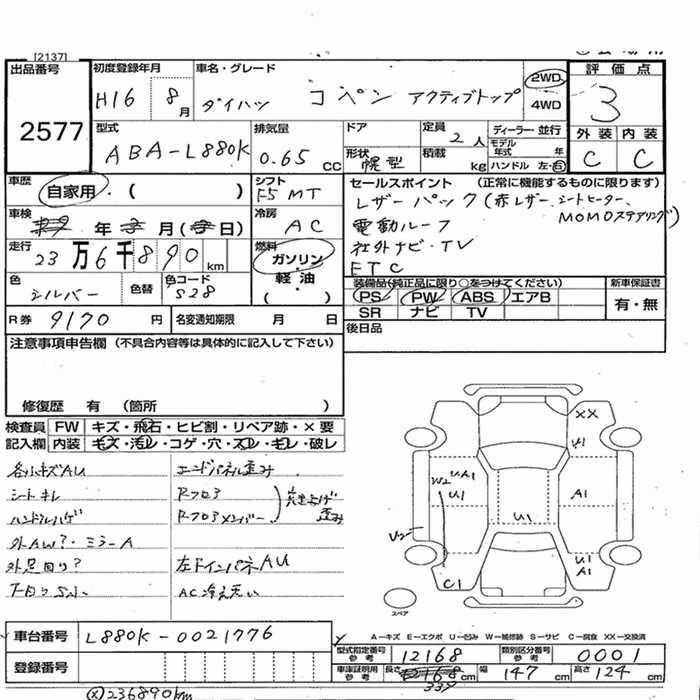 [2137]
出品番号 初度登録年月 車名・グレード 2WD 評価点
2577 H16 8月 ダイハツ コペン アクティブトップ 4WD 3
型式 排気量 ドア 定員 2人 ディーラー・並行 外装 内装
ABA-L880K 0.65 CC 形状 幌型 積載 kg モデル年式 年 ハンドル 左・右 C C
車歴 自家用・( ) シフト F5 MT セールスポイント (正常に機能するものに限ります)
レザーパック(赤レザー、シートヒーター、
MOMOステアリング)
車検 年 月 ( 日) 冷房 AC 電動ルーフ
走行 23万6千890km 燃料 ガソリン・軽油・( ) 社外ナビ・TV
ETC
色 シルバー 色替 色コード S28 装備品(純正品に限り○をつけてください) 新車保証書
PS PW ABS エアB 有・無
SR ナビ TV
R券 9170円 名変通知期限 月 日 後日品
注意事項申告欄 (不具合内容等は具体的に記入して下さい)
修復歴 有 (箇所 )
検査員 FW キズ・飛石・ヒビ割・リペア跡・×要
記入欄 内装 キズ・汚レ・コゲ・穴・スレ・キレ・破レ
各小キズAU エンドパネル歪み
シートキレ Rフロア 穴 歪み
ハンドルハゲ Rフロアメンバー
外AW?・ミラーA
外足回り? 左ドインパネAU
下回りS小 AC冷え
XX
U1
UA1
W2
U1
A1
U1
U2
U1
A1
C1
スペア
A-キズ E-エクボ U-凹み W-補修跡 S-サビ C-腐食 XX-交換済
車台番号 L880K-0021776
型式指定番号 参考 12168 類別区分番号 参考 0001
登録番号
車庫証明用 参考 長さ 339 cm 幅 147 cm 高さ 124 cm
(×)236890km